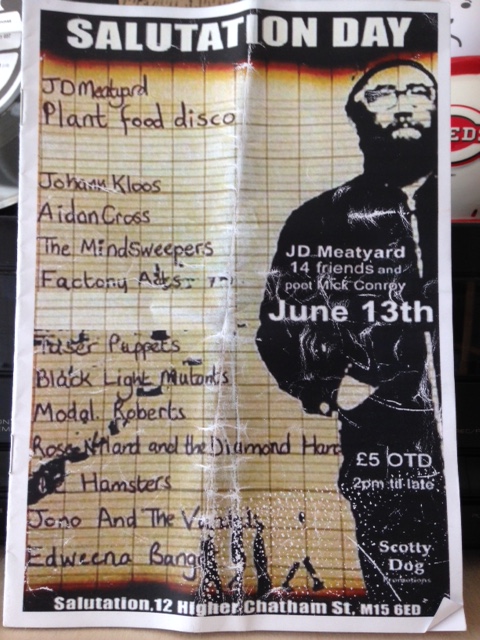 SALUTATION DAY
JD Meatyard
Plant food disco
Johann Kloos
Aidan Cross
The Mindsweepers
Factory Acts
Puppets
Black Light Mutants
Modal. Roberts
and the Diamond Hard
Hamsters
Jono And The
Edweena Bang
JD Meatyard
14 friends and
poet Mick Conroy
June 13th
£5 OTD
2pm til late
Scotty
Dog
Promotions
Salutation.12 Higher Chatham St, M15 6ED
EDS